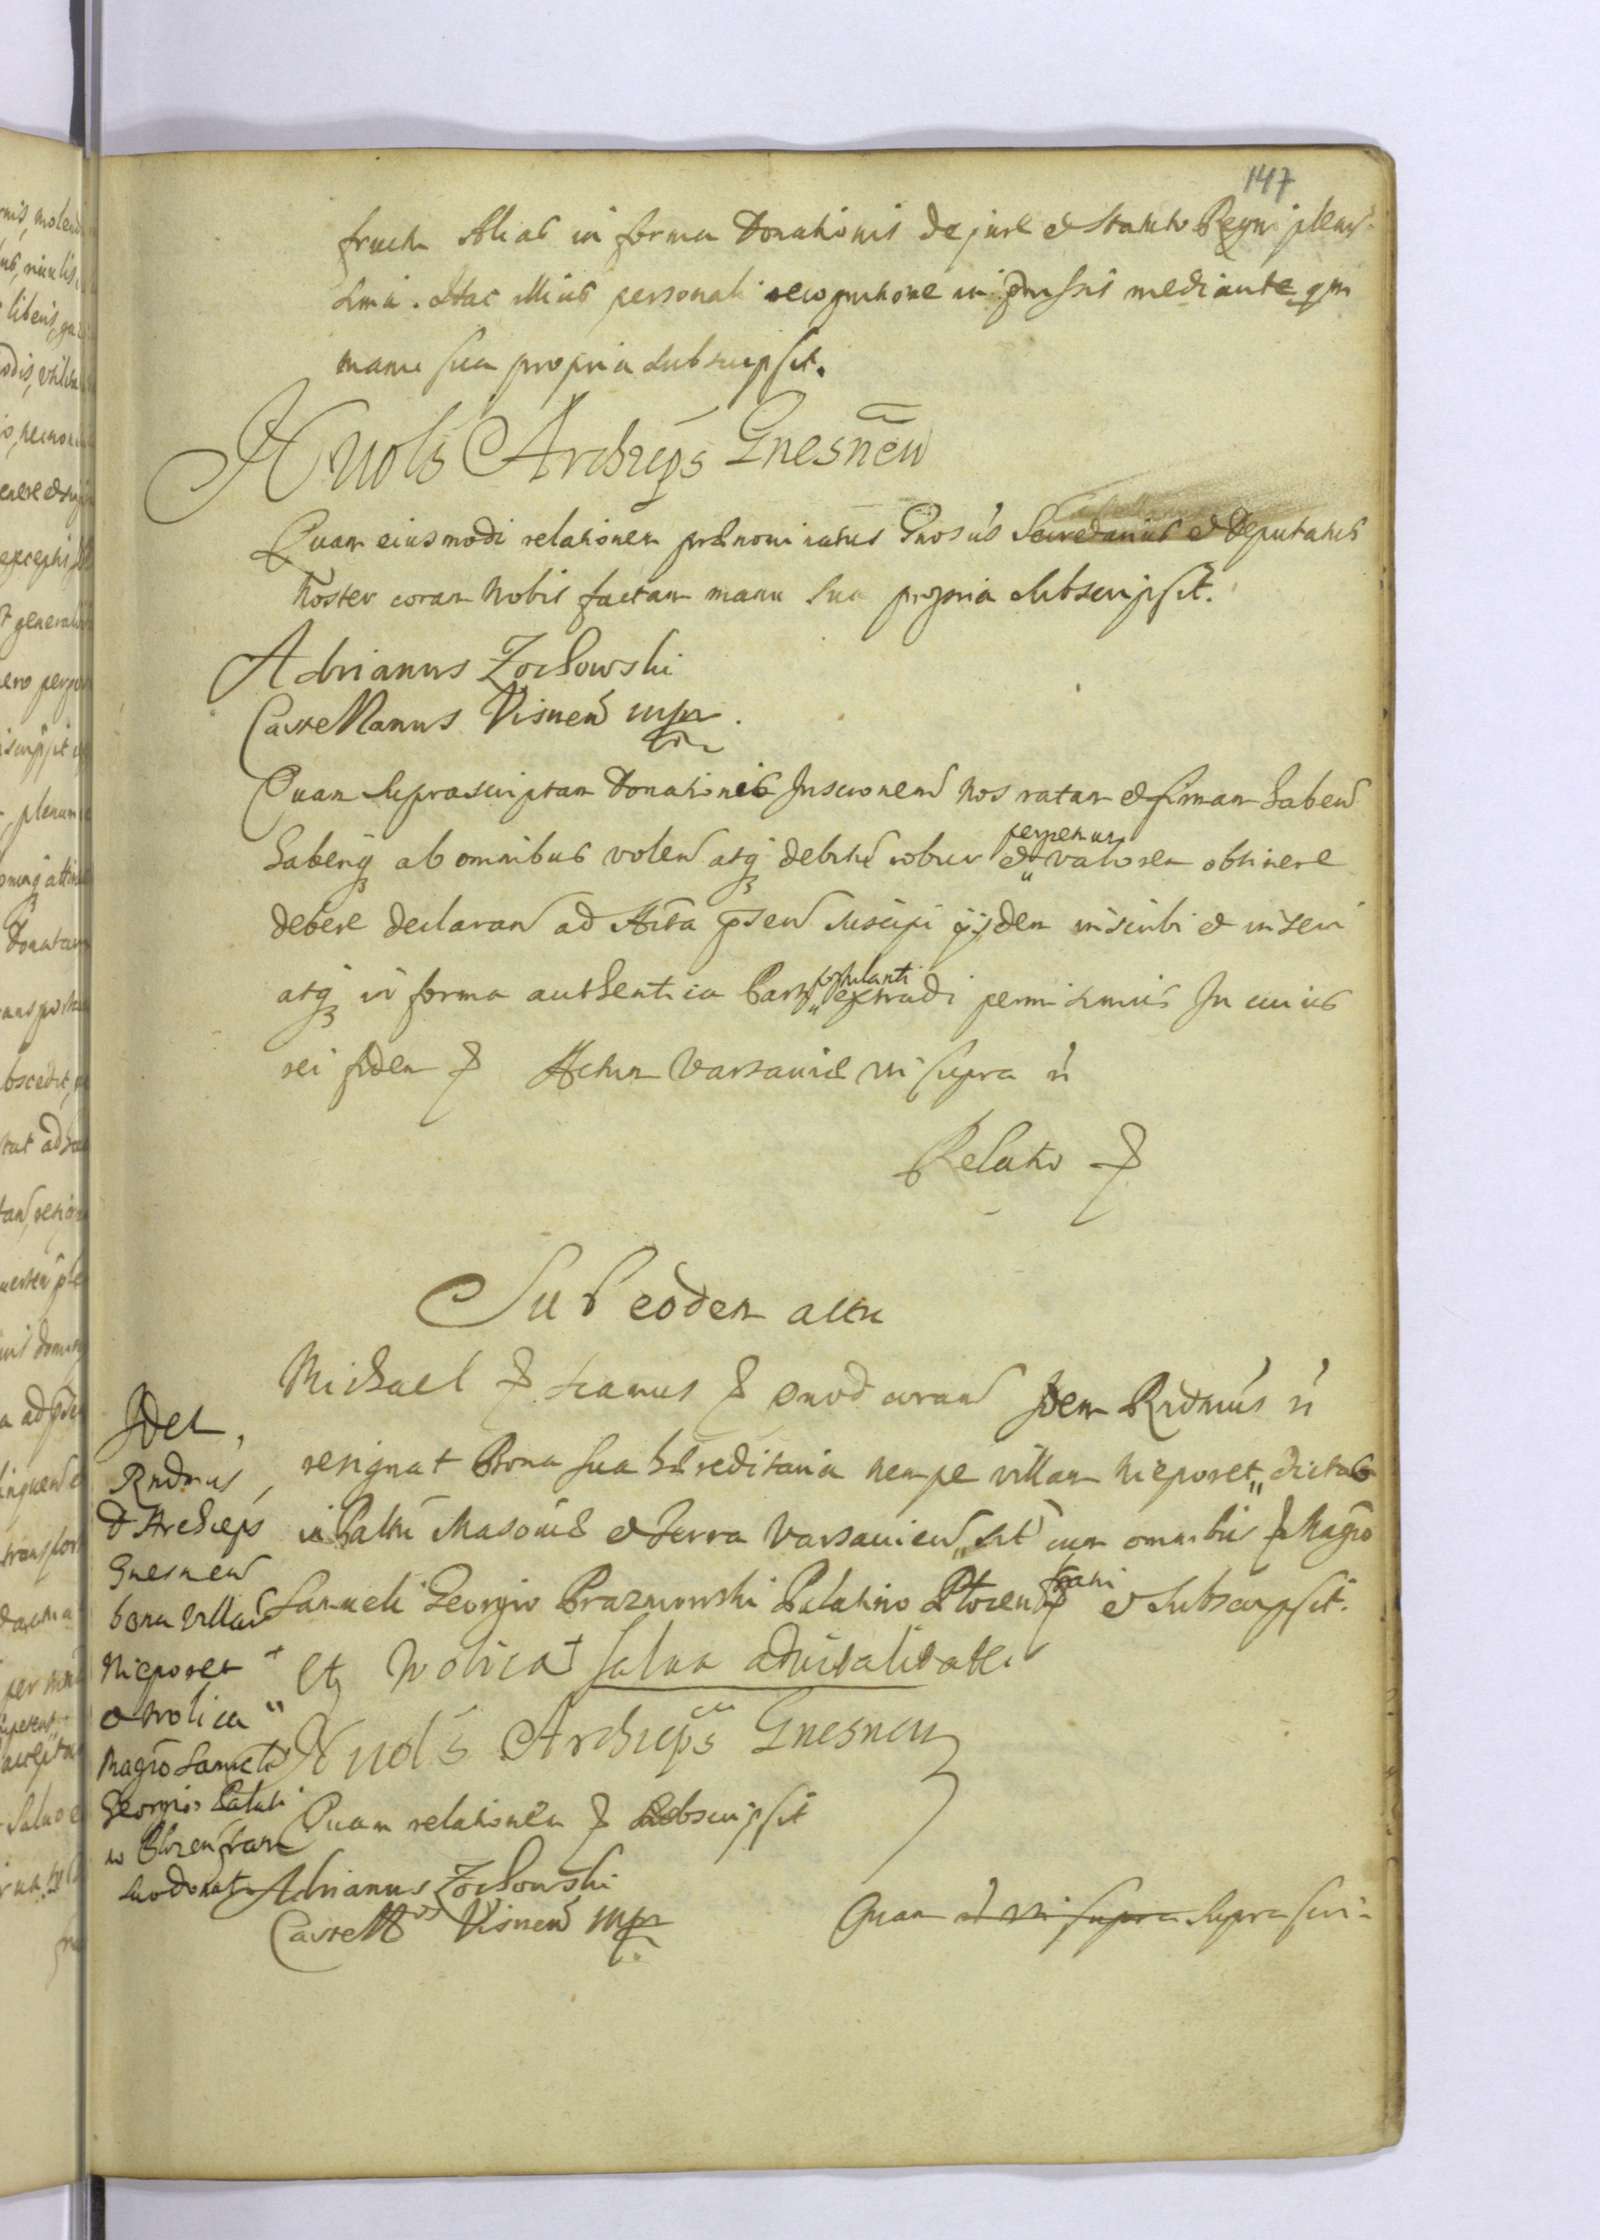 147
fructu Alias in forma Donationis de jure et Statuto Regni plenis-
sima. Hac illius personali recognitione in præmissis mediante qm
manu sua propria subscripsit.
Nicols Archieps Gnesnen
Quam eiusmodi relationem prænominatus Gnosus Secretarius et Deputatus
Noster coram Nobis factam manu sua propria subscripsit.
Adrianus Zochowski
Castellanus Visnen mpr.
Quam suprascriptam Donationis Inscrionem nos ratam et firmam haben
haberiq ab omnibus volen atq debitu robur et perpetuum valorem obtinere
debere declaran ad Acta pnsen suscipi ijsdem inscribi et inseri
atq in forma authentica Parti postulanti extradi permisimus In cuius
rei fidem & Actum Varsaviæ ut supra n
Relatio &
Sub eodem actu
Michael & tianus & quod coram Idem Rndmus n
resignat Bona sua hæreditaria nempe villam Nieporet „ dictas
in Paltu Masoviæ et Terra Varsavien sit cum omnibus & Magco
Samueli Georgio Prazmowski Palatino Plocen fratri & et subscripsit.
„ et Wolica + salva advitalitate
Nicols Archieps Gnesnen
Quam relationem & subscripsit
Adrianus Zochowski
Castell Visnen mpr
Quam et ut supra supra scri-
Idem
Rndmus
D Archieps
Gnesnen
bona Villas
Nieporet +
et Wolica "
Magco Samueli
Georgio Palati
no Plocen fratri
suo donat